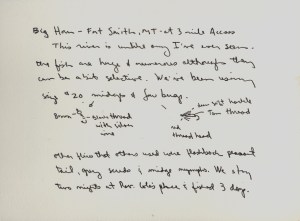 Big Horn - Fort Smith, MT - at 3 mile Access
This river is unlike any I've ever seen.
the fish are huge & numerous although they
can be a bit selective. We've been using
size # 20 midges & few bugs.
thread
with silver
wire
Tan thread
red
thread head
other flies that others used were flashback pheasant
tail, gray scuds & midge nymphs. We stay
two nights at place & fished 3 days.